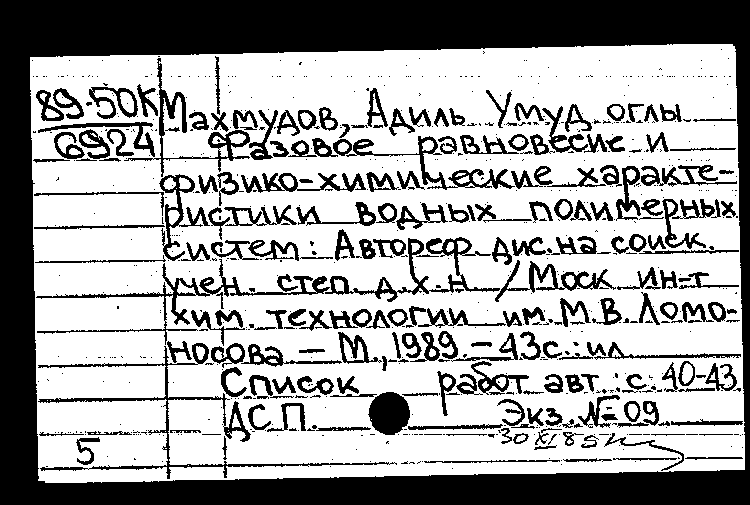 89-50К Махмудов, Адиль Умуд оглы
6924 Фазовое равновесие и
физико-химические характе-
ристики водных полимерных
систем: Автореф. дис. на соиск.
учен. степ. д.х.н / Моск ин-т
хим. технологии им. М.В. Ломо-
носова. – М., 1989. – 43с.: ил
Список работ авт.: с. 40-43
ДСП. Экз. № 09
5 30 XI 85